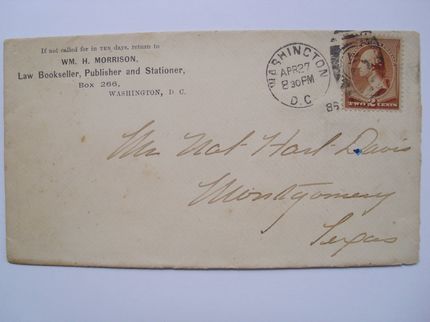 If not called for in TEN days, return to
WM. H. MORRISON,
Law Bookseller, Publisher and Stationer,
Box 266,
WASHINGTON, D. C.
WASHINGTON
APR 27
8 30 PM
D.C.
85
TWO CENTS
Mr Nat Hart Davis
Montgomery
Texas